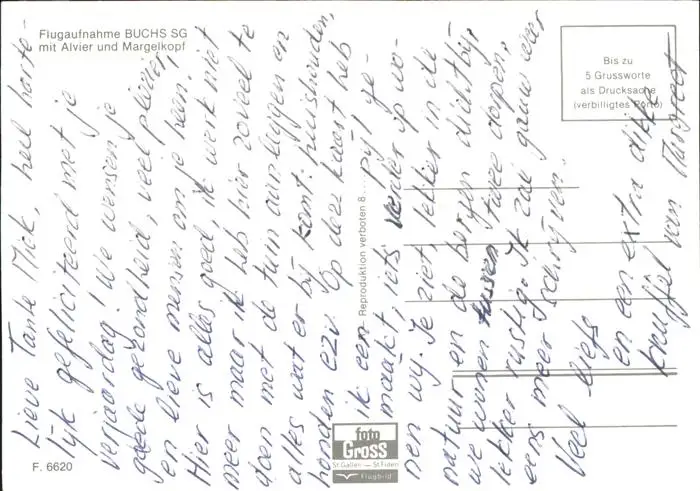 Flugaufnahme BUCHS SG
mit Alvier und Margelkopf
Bis zu
5 Grussworte
als Drucksache
(verbilligtes Porto)
Lieve Tante Miek, heel harte-
lijk gefeliciteerd met je
verjaardag! We wensen je
goede gezondheid, veel plezier,
en lieve mensen om je heen.
Hier is alles goed, ik werk niet
meer maar ik heb hier zoveel te
doen met de tuin aanleggen en
alles wat er bij komt: huishouden,
honden ezv. Op deze kaart heb
ik een pijl ge-
maakt, iets verder op wo-
nen wij. Je ziet lekker in de
natuur en de bergen dichtbij,
we wonen tussen twee dorpen,
lekker rustig. Ik zal gauw weer
eens meer schrijven.
Veel liefs
en een extra dikke
knuffel van Margreet
Reproduktion verboten 8...
foto
Gross
St. Gallen — St. Fiden
Flugbild
F. 6620